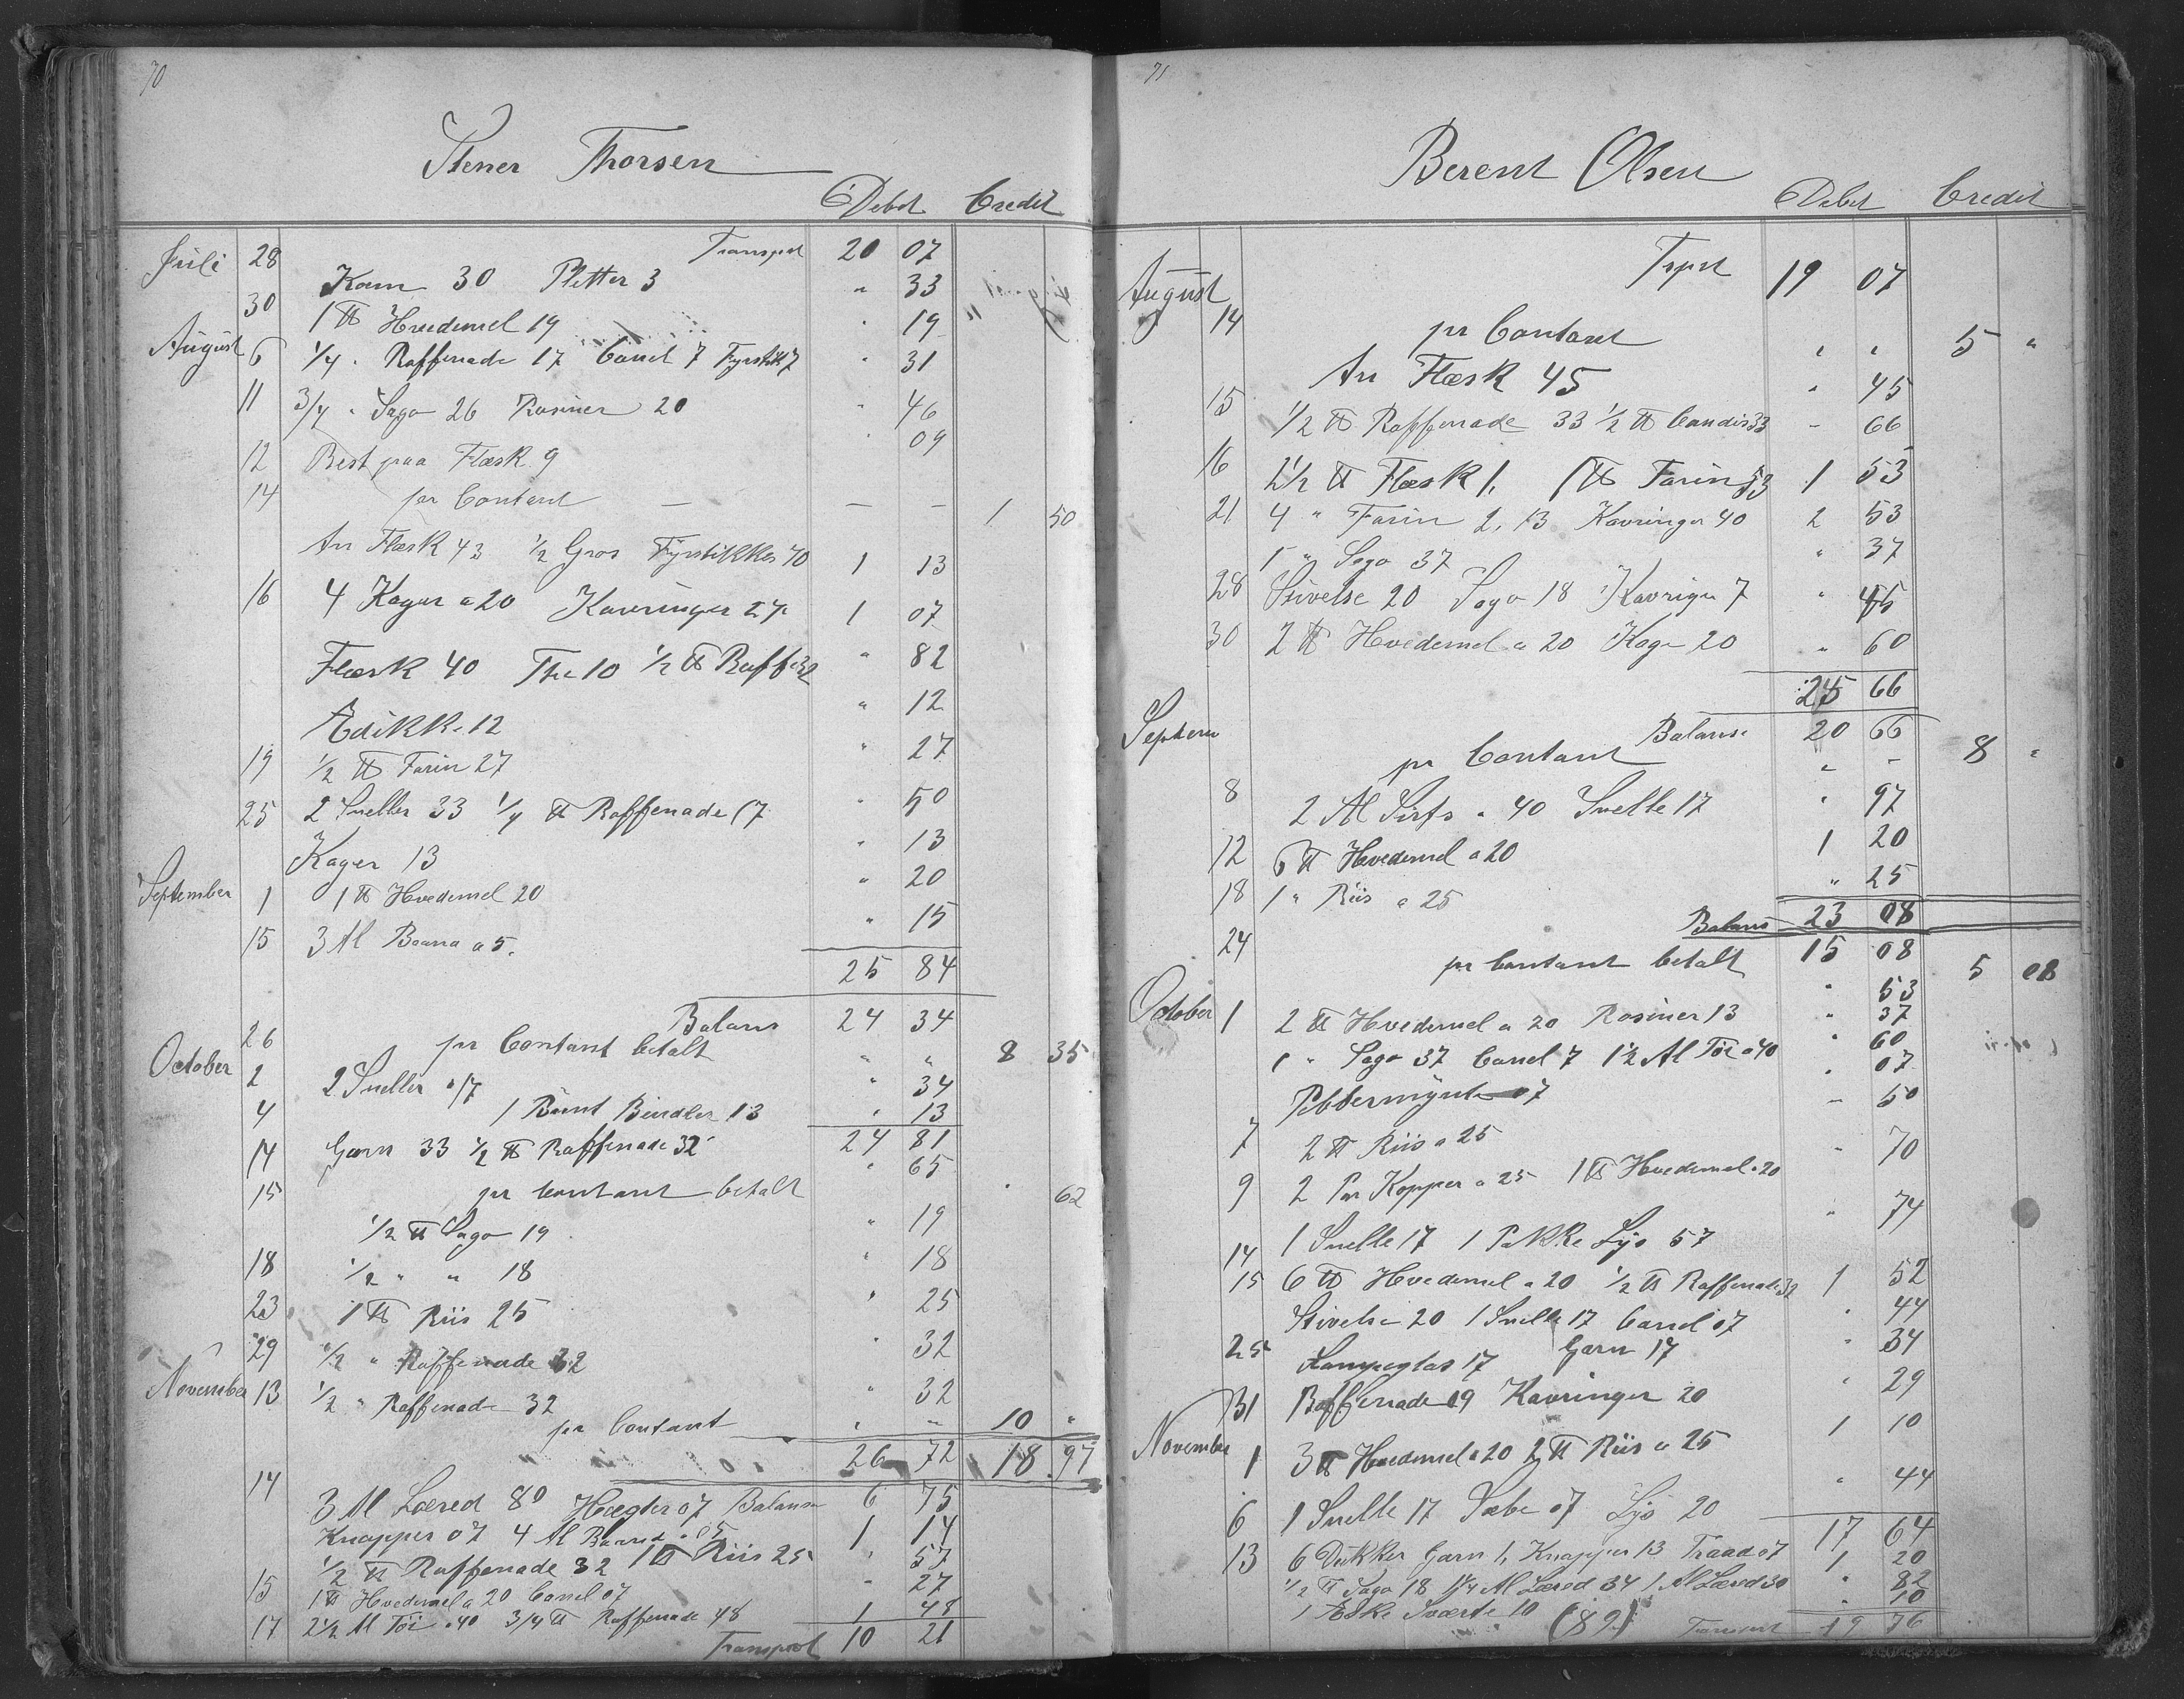 70
Stener Thorsen
Debet Credit
Juli 28 Transport 20 07
Kam 30 Pletter 3 " 33
30 1 ℔ Hvedemel 19 " 19
August 6 1/4 " Raffenade 17 Canel 7 Fyrstik 7 " 31
11 3/4 " Sago 26 Rosiner 20 " 46
12 Rest paa Flæsk 9 " 09
14 pr Contant — — — 1 50
An Flæsk 43 1/2 Gros Fyrstikker 70 1 13
16 4 Kager a 20 Kavringer 27 1 07
Flæsk 40 The 10 1/2 ℔ Raff 32 " 82
Edikke 12 " 12
19 1/2 ℔ Farin 27 " 27
25 2 Sneller 33 1/4 ℔ Raffenade 17 " 50
Kager 13 " 13
September 1 1 ℔ Hvedemel 20 " 20
15 3 Al Baand a 5. " 15
25 84
Balans 24 34
26 pr Contant betalt " " 8 35
October 2 2 Sneller a 17 " 34
4 1 Bunt Bendler 13 " 13
24 81
14 Garn 33 1/2 ℔ Raffenade 32 " 65
15 pr Contant betalt " 62
1/2 ℔ Sago 19 " 19
18 1/2 " " 18 " 18
23 1 ℔ Riis 25 " 25
29 1/2 " Raffenade 32 " 32
November 13 1/2 " Raffenade 32 " 32
pr Contant " " 10 "
26 72 18 97
14 3 Al Lœred 80 Hægter 07 Balanse 6 75
Knapper 07 4 Al Baand a 05 1 14
1/2 ℔ Raffenade 32 1 ℔ Riis 25 " 57
15 1 ℔ Hvedemel a 20 Canel 07 " 27
17 2 1/2 Al Töi a 40 3/4 ℔ Raffenade 48 1 48
Transport 10 21
71
Berent Olsen
Debet Credit
August Trpst 19 07
14 pr Contant " " 5 "
An Flæsk 45 " 45
15 1/2 ℔ Raffenade 33 1/2 ℔ Candis 33 – 66
16 2 1/2 ℔ Flæsk 1, 1 ℔ Farin 53 1 53
21 4 " Farin 2,13 Kavringer 40 2 53
1 " Sago 37 " 37
28 Stivelse 20 Sago 18 Kavriger 7 " 45
30 2 ℔ Hvedemel a 20 Kage 20 " 60
25 66
Septem Balanse 20 66
pr Contant " – 8 "
8 2 Al Sirts a 40 Snelle 17 " 97
12 6 ℔ Hvedemel a 20 1 20
18 1 " Riis a 25 " 25
Balans 23 08
24 pr Contant betalt 15 08 5 08
October 1 2 ℔ Hvedemel a 20 Rosiner 13 " 53
1 " Sago 37 Canel 7 1 1/2 Al Töi a 40 " 37
" 60
Pebbermynte 07 " 07
7 2 ℔ Riis a 25 – 50
9 2 Par Kopper a 25 1 ℔ Hvedemel a 20 – 70
14 1 Snelle 17 1 Pakke Lys 57 " 74
15 6 ℔ Hvedemel a 20 1/2 ℔ Raffenade 32 1 52
Stivelse 20 1 Snelle 17 Canel 07 " 44
25 Lampeglas 17 Garn 17 " 34
31 Raffenade 09 Kavringer 20 " 29
November 1 3 ℔ Hvedemel a 20 2 ℔ Riis a 25 1 10
6 1 Snelle 17 Sæbe 07 Lys 20 " 44
17 64
13 6 Dukker Garn 1, Knapper 13 Traad 07 1 20
1/2 ℔ Sago 18 1 1/4 Al Lœred 34 1 Al Lœred 30 " 82
1 Æske Sværte 10 (89) " 10
Transport 19 76